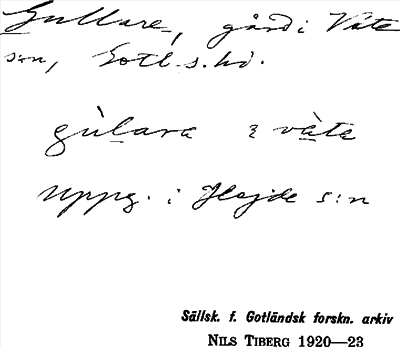 Gullare, gård i Väte
s:n, Gotl. s. hd.
gùlara i väte
uppg. i Hejde s:n
Sällsk. f. Gotländsk forskn. arkiv
NILS TIBERG 1920—23